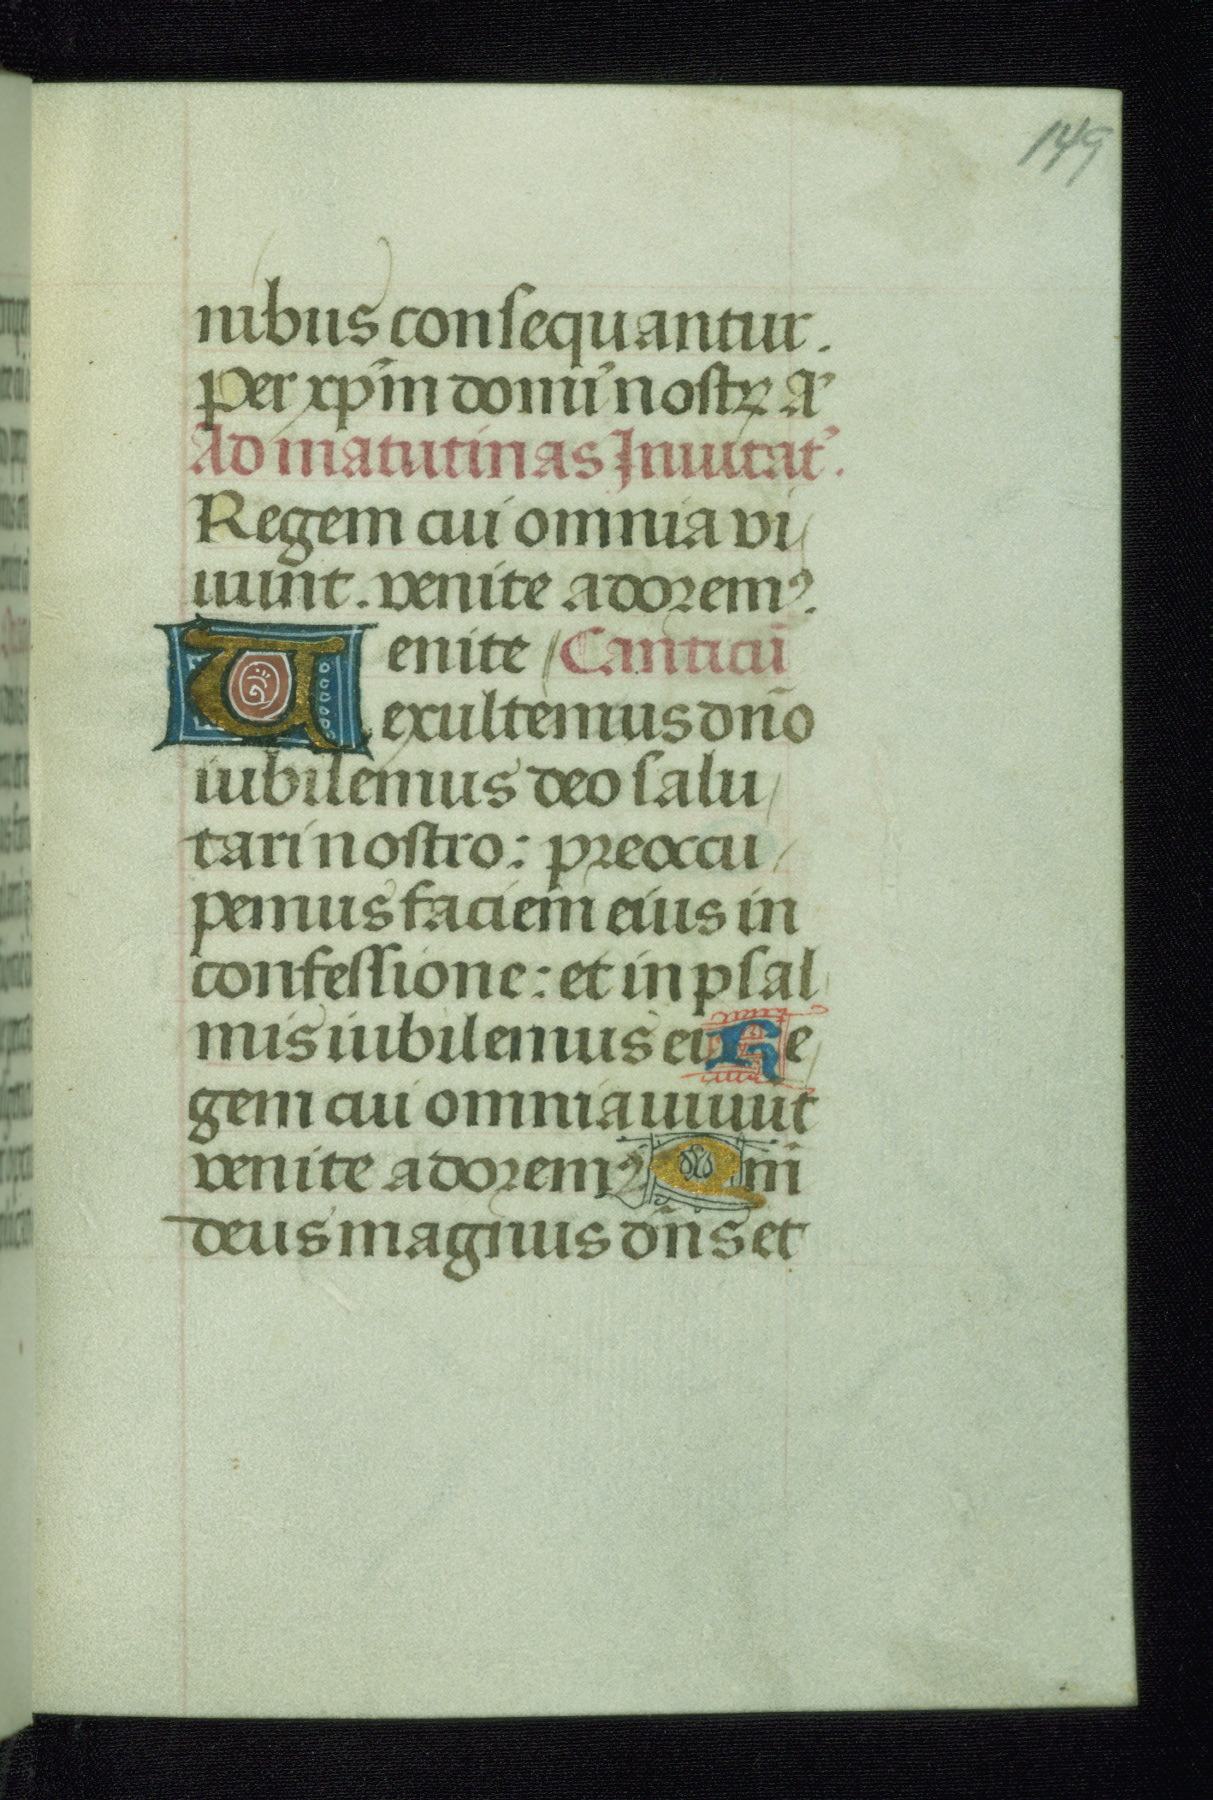 149
nibus consequantur.
Per xp̄m domī nostꝝ A
Ad matutinas Inuitat̄.
Regem cui omnia vi/
uunt. venite adorem⁹.
Venite / Canticū
exultemus dn̄o
iubilemus deo salu/
tari nostro: preoccu/
pemus faciem eius in
confessione: et in psal
mis iubilemus ei Re/
gem cui omnia uiuūt
venite adorem⁹ Qm̄
deus magnus dn̄s et